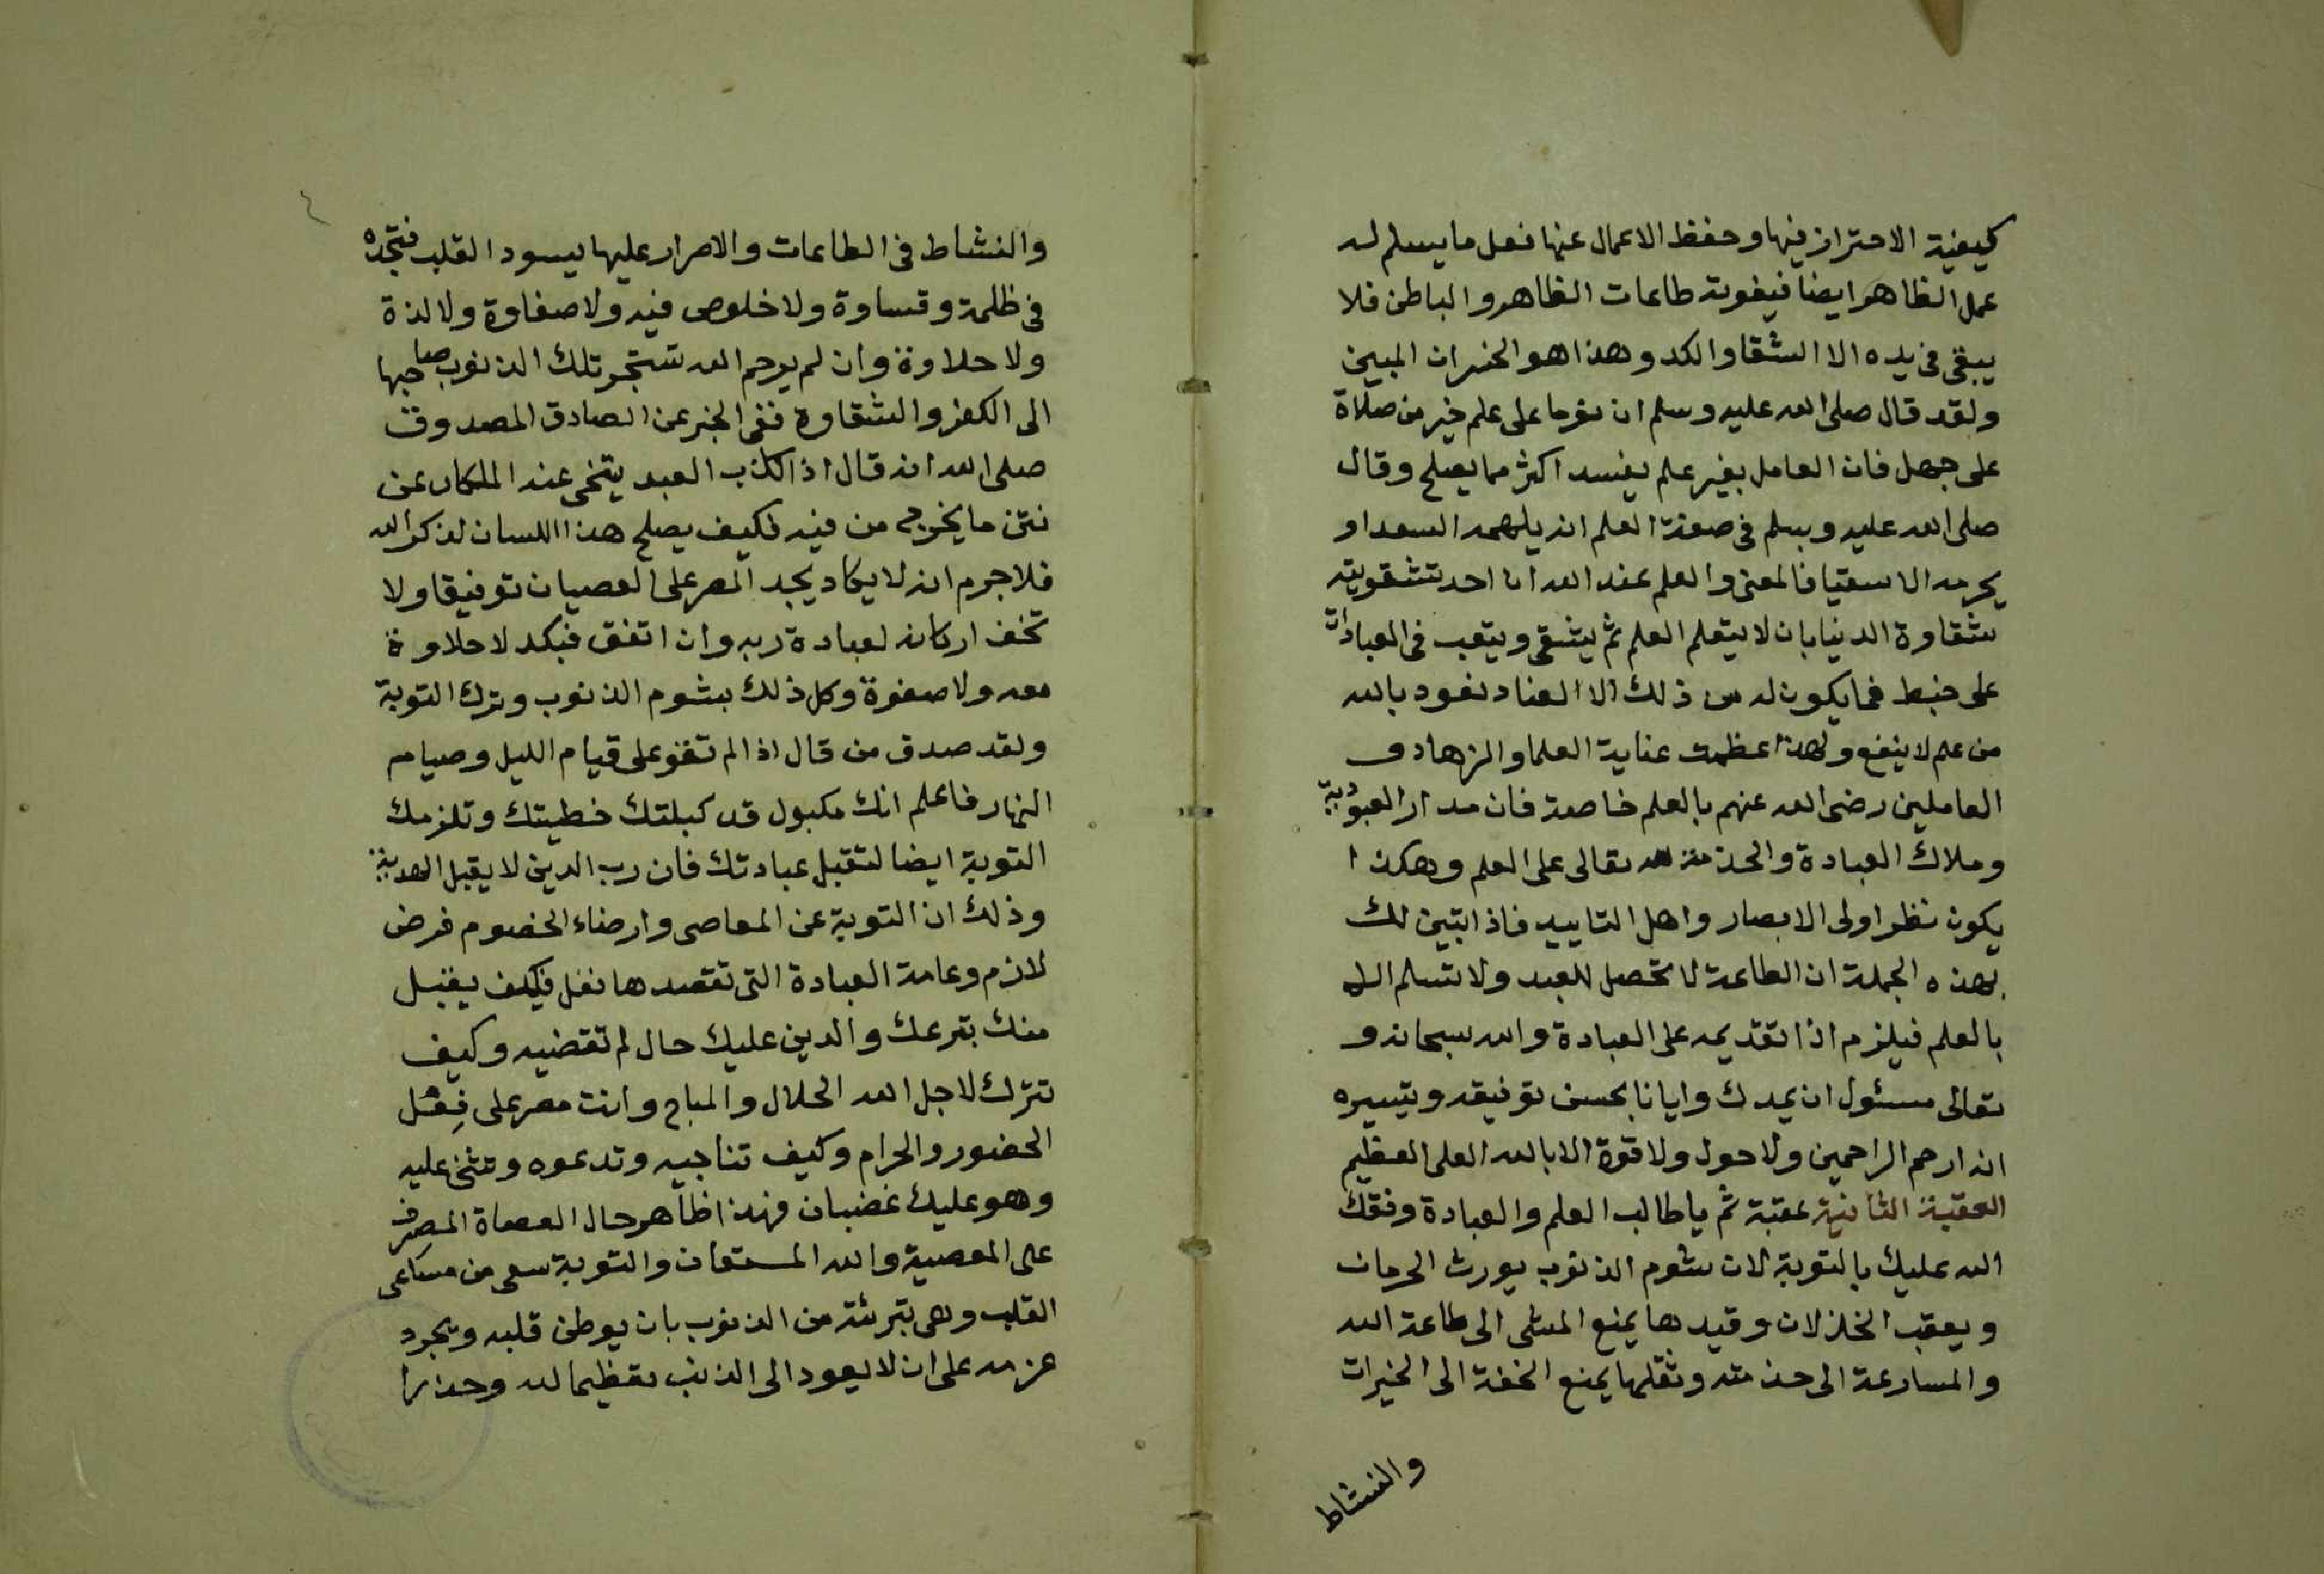 كيفية الاحتراز فيها وحفظ الاعمال عنها فعل ما يسلم له
عمل الظاهر ايضا فيفوته طاعات الظاهر والباطن فلا
يبقى في يده الا الشقا والكد وهذا هو الخسران المبين
ولقد قال صلى الله عليه وسلم ان نوما على علم خير من صلاة
على جهل فان العامل بغير علم يفسد اكثر مما يصلح وقال
صلى الله عليه وسلم في صفة العلم انه يلهمه السعدا و
يحرمه الاسقيا فالمعنى والعلم عند الله ان احد تشقويته
شقاوة الدنيا بان لا يتعلم العلم ثم يشقى ويتعب في العبادات
على خبط فما يكون له من ذلك الا العناد نعود بالله
من علم لا ينفع ولهذا عظمت عناية العلما والزهاد ف
العاملين رضى الله عنهم بالعلم خاصة فان مدار العبودية
وملاك العبادة والخدمة لله تعالى على العلم وهكذا
يكون نظر اولى الابصار واهل التاييد فاذا تبين لك
بهذه الجملة ان الطاعة لا تحصل للعبد ولا تسلم الا
بالعلم فيلزم اذا تقديمه على العبادة والله سبحانه و
تعالى مسئول ان يمدك وايانا بحسن توفيقه وتيسيره
انه ارحم الراحمين ولا حول ولا قوة الا بالله العلى العظيم
العقبة الثانية عقبة ثم يا طالب العلم والعبادة وفقك
الله عليك بالتوبة لان شوم الذنوب يورث الحرمان
ويعقب الخذلان وقيدها يمنع المشى الى طاعة الله
والمسارعة الى خدمته وثقلها يمنع الخفة الى الخيرات
والنشاط
٤
والنشاط في الطاعات والاصرار عليها يسود القلب فتجده
في ظلمة وقساوة ولا خلوص فيه ولا صفاوة ولا لذة
ولا حلاوة وان لم يرحم الله ستجر تلك الذنوب صاحبها
الى الكفر والشقاوة ففى الخبر عن الصادق المصدوق
صلى الله انه قال اذا كذب العبد يتنحى عنه الملكان عن
نتن ما يخرج من فيه فكيف يصلح هذا اللسان لذكر الله
فلا جرم انه لا يكاد يجد المصر على العصيان توفيقا ولا
تخف اركانه لعبادة ربه وان اتفق فبكد لا حلاوة
معه ولا صفوة وكل ذلك بشوم الذنوب وترك التوبة
ولقد صدق من قال اذا لم تقو على قيام الليل وصيام
النهار فاعلم انك مكبول قد كبلتك خطيتك وتلزمك
التوبة ايضا لتقبل عبادتك فان رب الدين لا يقبل الهدية
وذلك ان التوبة عن المعاصى وارضاء الخصوم فرض
لازم وعامة العبادة التى تقصدها نفل فكيف يقبل
منك بترعك والدين عليك حال لم تقضيه وكيف
تترك لاجل الله الحلال والمباح وانت مصر على فعل
الحضور والحرام وكيف تناجيه وتدعوه وتثنى عليه
وهو عليك غضبان فهذا ظاهر حال العصاة المصرف
على المعصية والله المستعان والتوبة سعى من مساعى
القلب وهى تبرئته من الذنوب بان يوطن قلبه ويجرد
عزمه على ان لا يعود الى الذنب تعظيما لله وحذرا